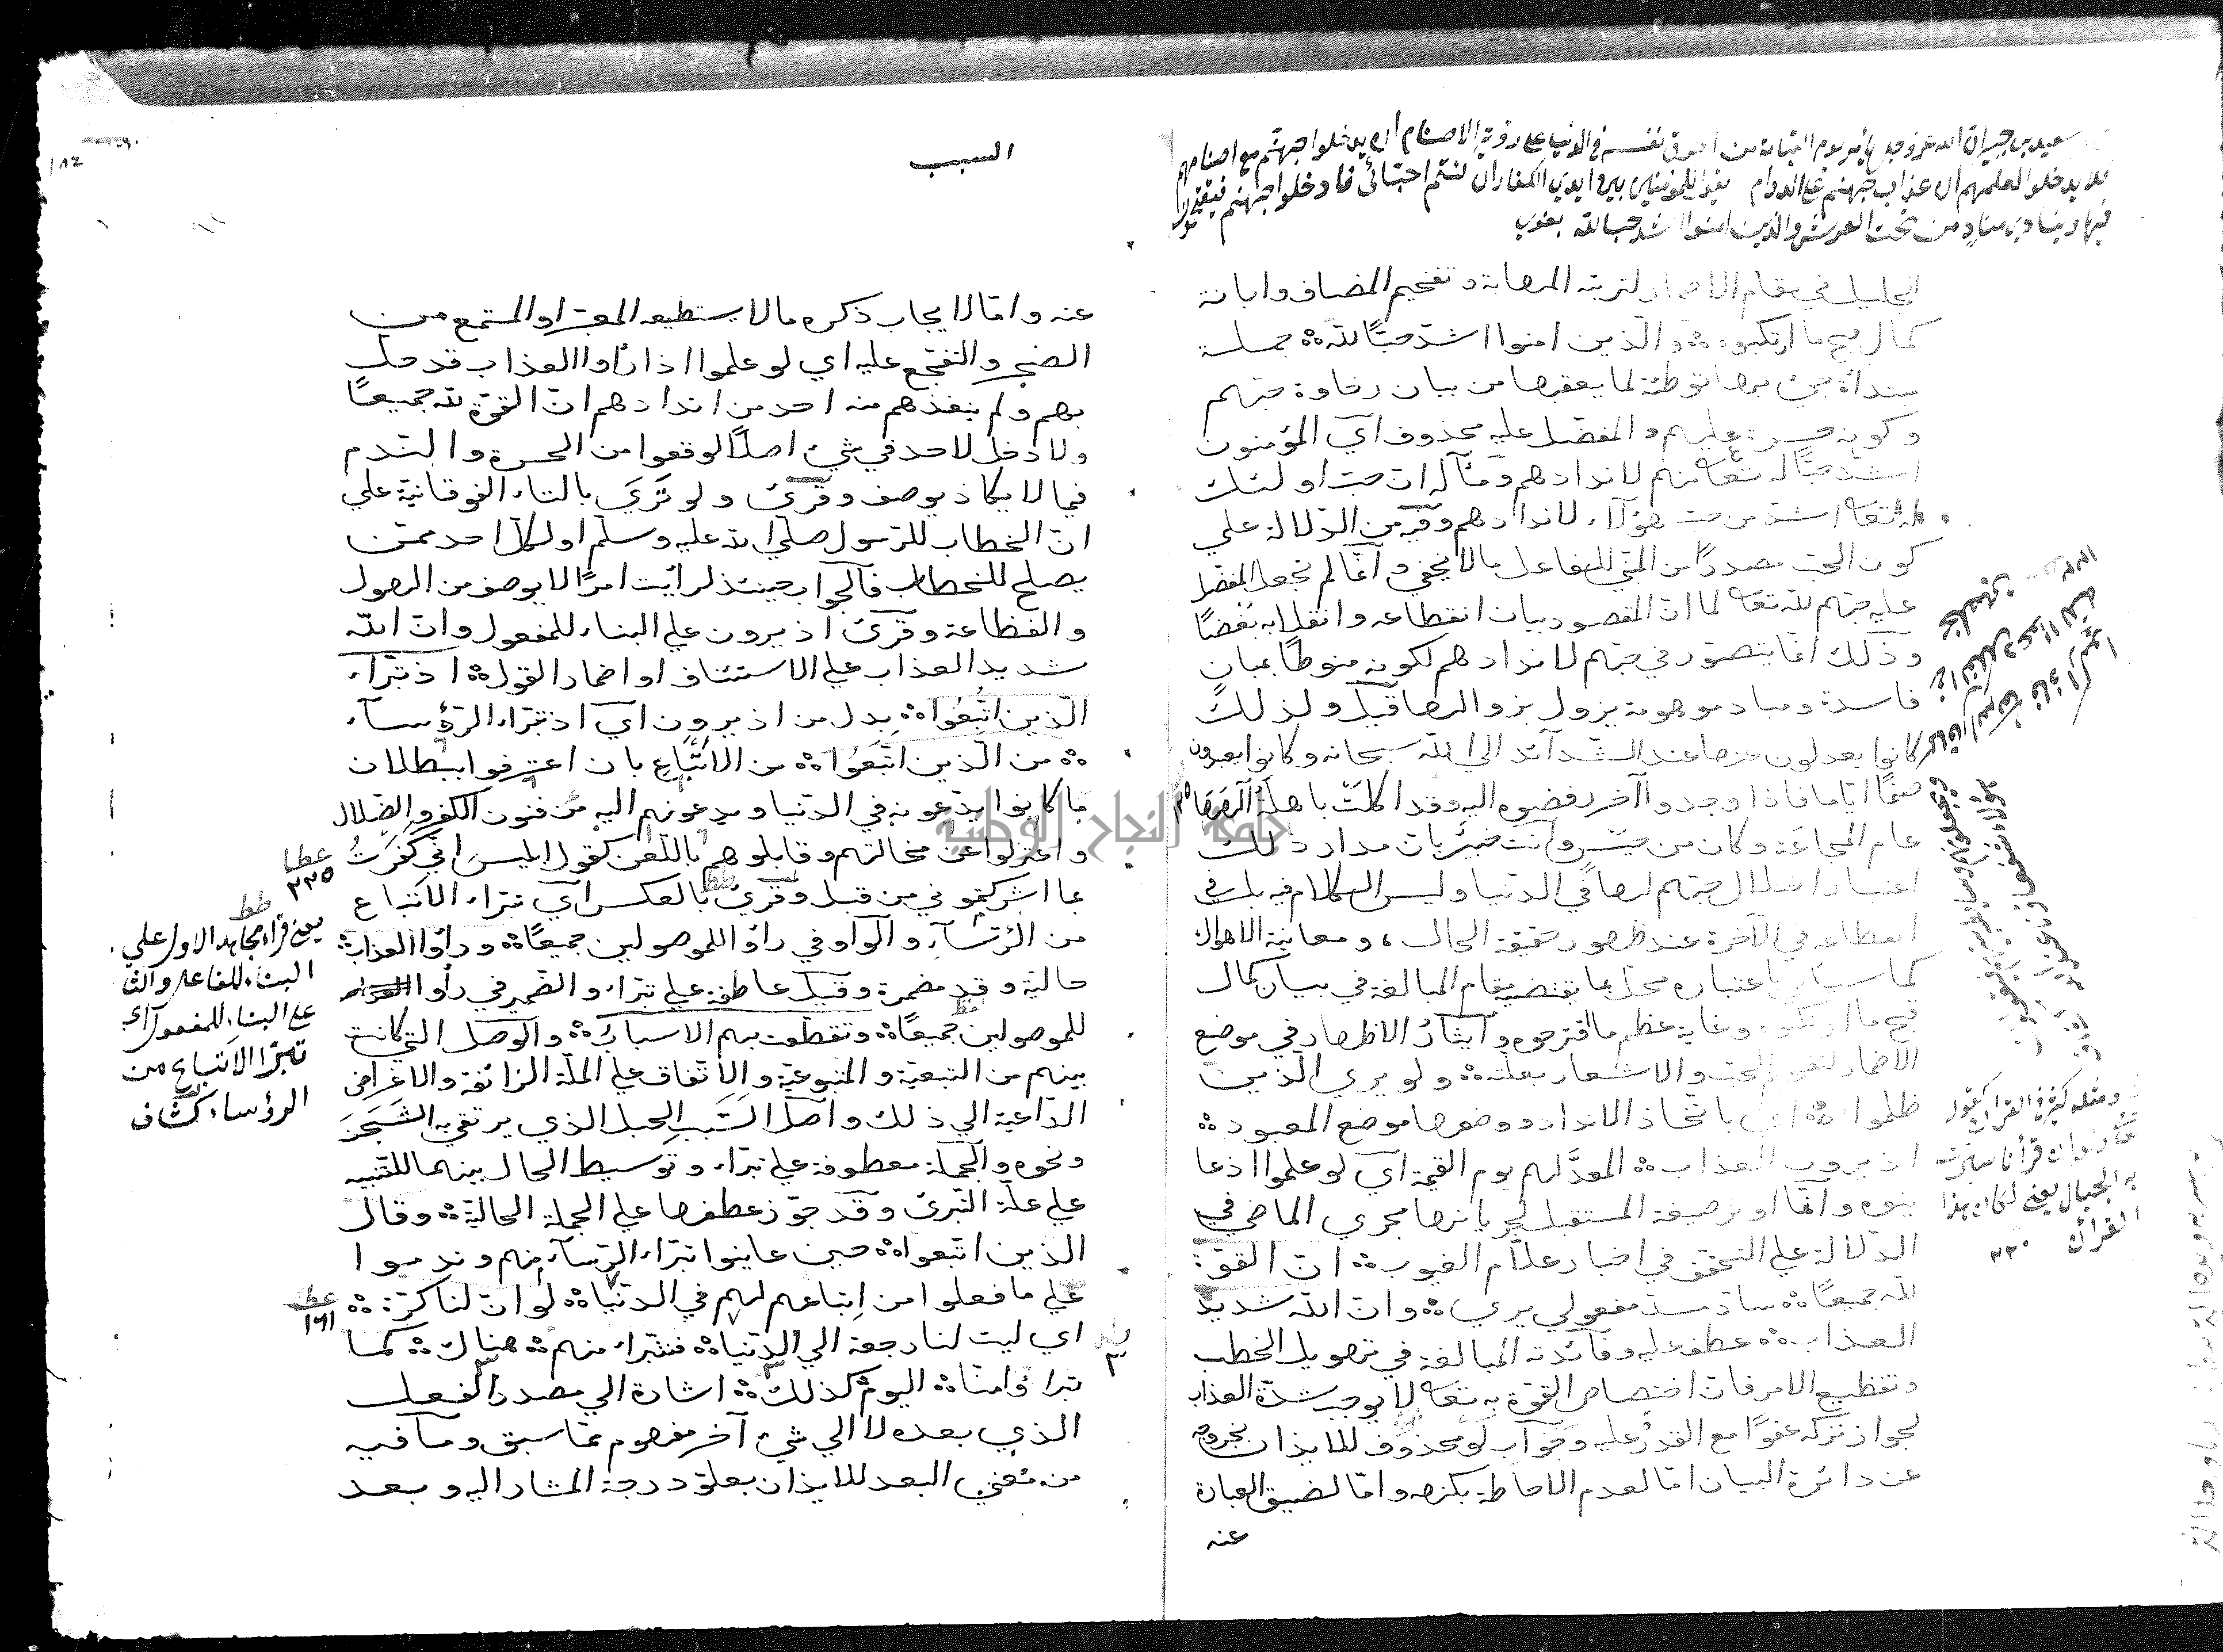 سعيد بن جبير ان الله عز وجل يأمر يوم القيامة من احرق نفسه في الدنيا على رؤية الاصنام ان يدخلوا جهنم مع اصنامهم
فلا يدخلوا لعلمهم ان عذاب جهنم على الدوام ثم يقول للمؤمنين بين ايدي الكفار ان كنتم احبائي فادخلوا جهنم فيقتحمون
فيها وينادي مناد من تحت العرش والذين امنوا اشد حبا لله بغوي
الجليل في مقام الاضمار لتربية المهابة وتفخيم المضاف وابانة
كمال قبح ما ارتكبوه والذين امنوا اشد حبًا لله جملة
مبتدأة جئ بها توطئة لما يعقبها من بيان رخاوة حبهم
وكونه حسرة عليهم والمفضل عليه محذوف اي المؤمنون
اشد حبًا له تعا منهم لاندادهم ومآله ان حب اولئك
له تعا اشد من حب هؤلاء لاندادهم وفيه من الدلالة علي
كون الحب مصدرًا من المبني للفاعل ما لا يخفي وانما لم يجعل المفضل
عليه حبهم لله تعا لما ان المقصود بيان انقطاعه وانقلابه بغضًا
وذلك انما يتصور في حبهم لاندادهم لكونه منوطًا بمبان
فاسدة ومباد موهومة يزول بزوالها قيل ولذلك
كانوا يعدلون عنها عند الشدآئد الي الله سبحانه وكانوا يعبدون
صنمًا ايامًا فاذا وجدوا آخر رفضوه اليه وقد اكلت باهلة الهها
عام المجاعة وكان من حيس وانت خبير بان مدار ذلك
اعتبار اختلال حبهم لها في الدنيا وليس الكلام فيه بل في
انقطاعه في الآخرة عند ظهور حقيقة الحال ومعاينة الاهوال
كما سيأتي باعتباره مخل بما يقتضيه مقام المبالغة في بيان كمال
قبح ما ارتكبوه وغاية عظم ما اقترحوه وايثار الاظهار في موضع
الاضمار لتفخيم الحب والاشعار بعلته ولو يري الذين
ظلموا اي باتخاذ الانداد ووضعها موضع المعبود
اذ يرون العذاب المعد لهم يوم القيمة اي لو علموا اذ عا
ينوه وانما اوثر صيغة المستقبل لجريانها مجري الماضي في
الدلالة علي التحقق في اخبار علام الغيوب ان القوة
لله جميعًا ساد مسد مفعولي يري وان الله شديد
العذاب عطف عليه وفائدته المبالغة في تهويل الخطب
وتفظيع الامر فان اختصاص القوة به تعا لا يوجب شدة العذاب
لجواز تركه عفوًا مع القدرة عليه وجواب لو محذوف للايذان بخروجه
عن دائرة البيان اما لعدم الاحاطة بكنهه واما لضيق العبارة
عنه
ومثله كثير في القران كقوله
تعا ولو ان قرأنا سيرت
به الجبال يعني لكان هذا
القرآن ٢٢٠
السبب
عنه واما لايجاب ذكره ما لا يستطيعه المعبر او المستمع من
الضجر والتفجع عليه اي لو علموا اذ رأوا العذاب قد حل
بهم ولم ينقذهم منه احد من اندادهم ان القوة لله جميعًا
ولا دخل لاحد في شئ اصلًا لوقعوا من الحسرة والندم
فيما لا يكاد يوصف وقرئ ولو تري بالتاء الفوقانية علي
ان الخطاب للرسول صلي الله عليه وسلم او لكل احد ممن
يصلح للخطاب فالجواب حينئذ لرأيت امرًا لا يوصف من الهول
والفظاعة وقرئ اذ يرون علي البناء للمفعول وان الله
شديد العذاب علي الاستئناف او اضمار القول اذ تبراء
الذين اتُّبِعوا بدل من اذ يرون اي اذ تبراء الرؤسآء
من الذين اتَّبَعوا من الاتباع بان اعترفوا ببطلان
ما كانوا يدعونه في الدنيا ويدعونهم اليه من فنون الكفر والضلال
واعتزلوا عن مخالتهم وقابلوهم باللعن كقول ابليس اني كفرت
بما اشركتموني من قبل وقرئ بالعكس اي تبراء الاتباع
من الرؤسآء والواو في رأوا للموصولين جميعًا ورأوا العذاب
حالية وقد مضمرة وقيل عاطفة علي تبراء والضمير في رأوا
للموصولين جميعًا وتقطعت بهم الاسباب والوصل التي كانت
بينهم من التبعية والمتبوعية والاتفاق علي الملة الزائغة والاغراض
الداعية الي ذلك واصل السبب الحبل الذي يرتقي به الشجر
ونحوه والجملة معطوفة علي تبراء وتوسيط الحال بينهما للتنبيه
علي علة التبرئ وقد جوز عطفها علي الجملة الحالية وقال
الذين اتبعوا حين عاينوا تبراء الرؤسآء منهم وندموا
علي ما فعلوا من اتباعهم لهم في الدنيا لو ان لنا كرة
اي ليت لنا رجعة الي الدنيا فنتبراء منهم هناك كما
تبراوا منا اليوم كذلك اشارة الي مصدر الفعل
الذي بعده لا الي شئ آخر مفهوم مما سبق وما فيه
من معني البعد للايذان بعلو درجة المشار اليه وبعد
عطا
٢٢٥
يعني قراءة مجاهد الاول علي
البناء للفاعل والثا
علي البناء للمفعول اي
تبرأ الاتباع من
الرؤساء كشاف
١٦١
جامعة النجاح الوطنية